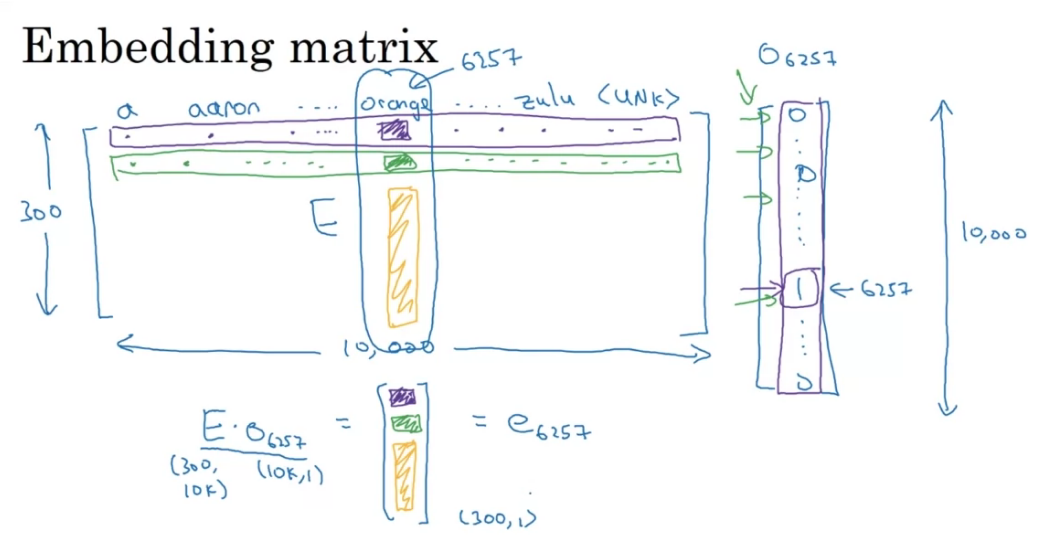 Embedding matrix
6257
O6257
a aaron ..... orange ..... zulu <UNK>
0
0
300
E
10,000
1
6257
0
10,000
E · O6257 = = e6257
(300, 10K) (10K,1)
(300,1)